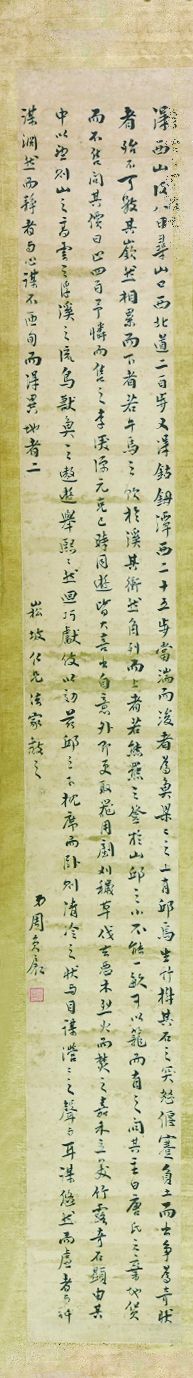 得西山後八日尋山口西北道二百步又得鈷鉧潭西二十五步當湍而浚者為魚梁々之上有邱焉生竹樹其石之突怒偃蹇負土而出爭為奇狀
者殆不可數其嶔然相累而下者若牛馬之飲於溪其衝然角列而上者若熊羆之登於山邱之小不能一畝可以籠而有之問其主曰唐氏之棄地貨
而不售問其價曰止四百予憐而售之李深源元克己時同遊皆大喜出自意外即更取器用剷刈穢草伐去惡木烈火而焚之嘉木立美竹露奇石顯由其
中以望則山之高雲之浮溪之流鳥獸魚之遨遊舉熙々然迴巧獻伎以効茲邱之下枕席而臥則清泠之狀與目謀瀯々之聲與耳謀悠然而虛者與神
謀淵然而靜者與心謀不匝旬而得異地者二
崧坡仁兄法家教之
弟周貞亮